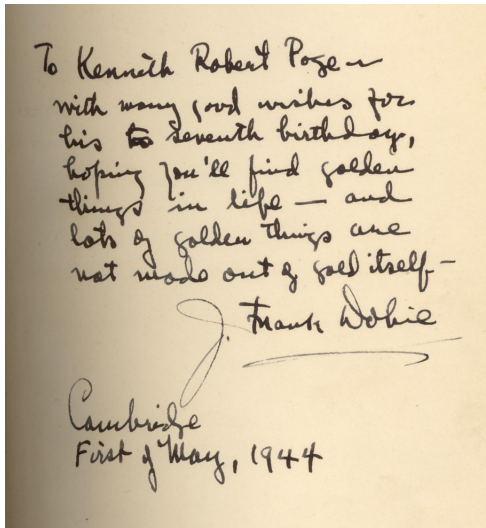 To Kennith Robert Poge —
with many good wishes for
his to seventh birthday,
hoping you'll find golden
things in life — and
lots of golden things are
not made out of gold itself —
J. Frank Dobie
Cambridge
First of May, 1944